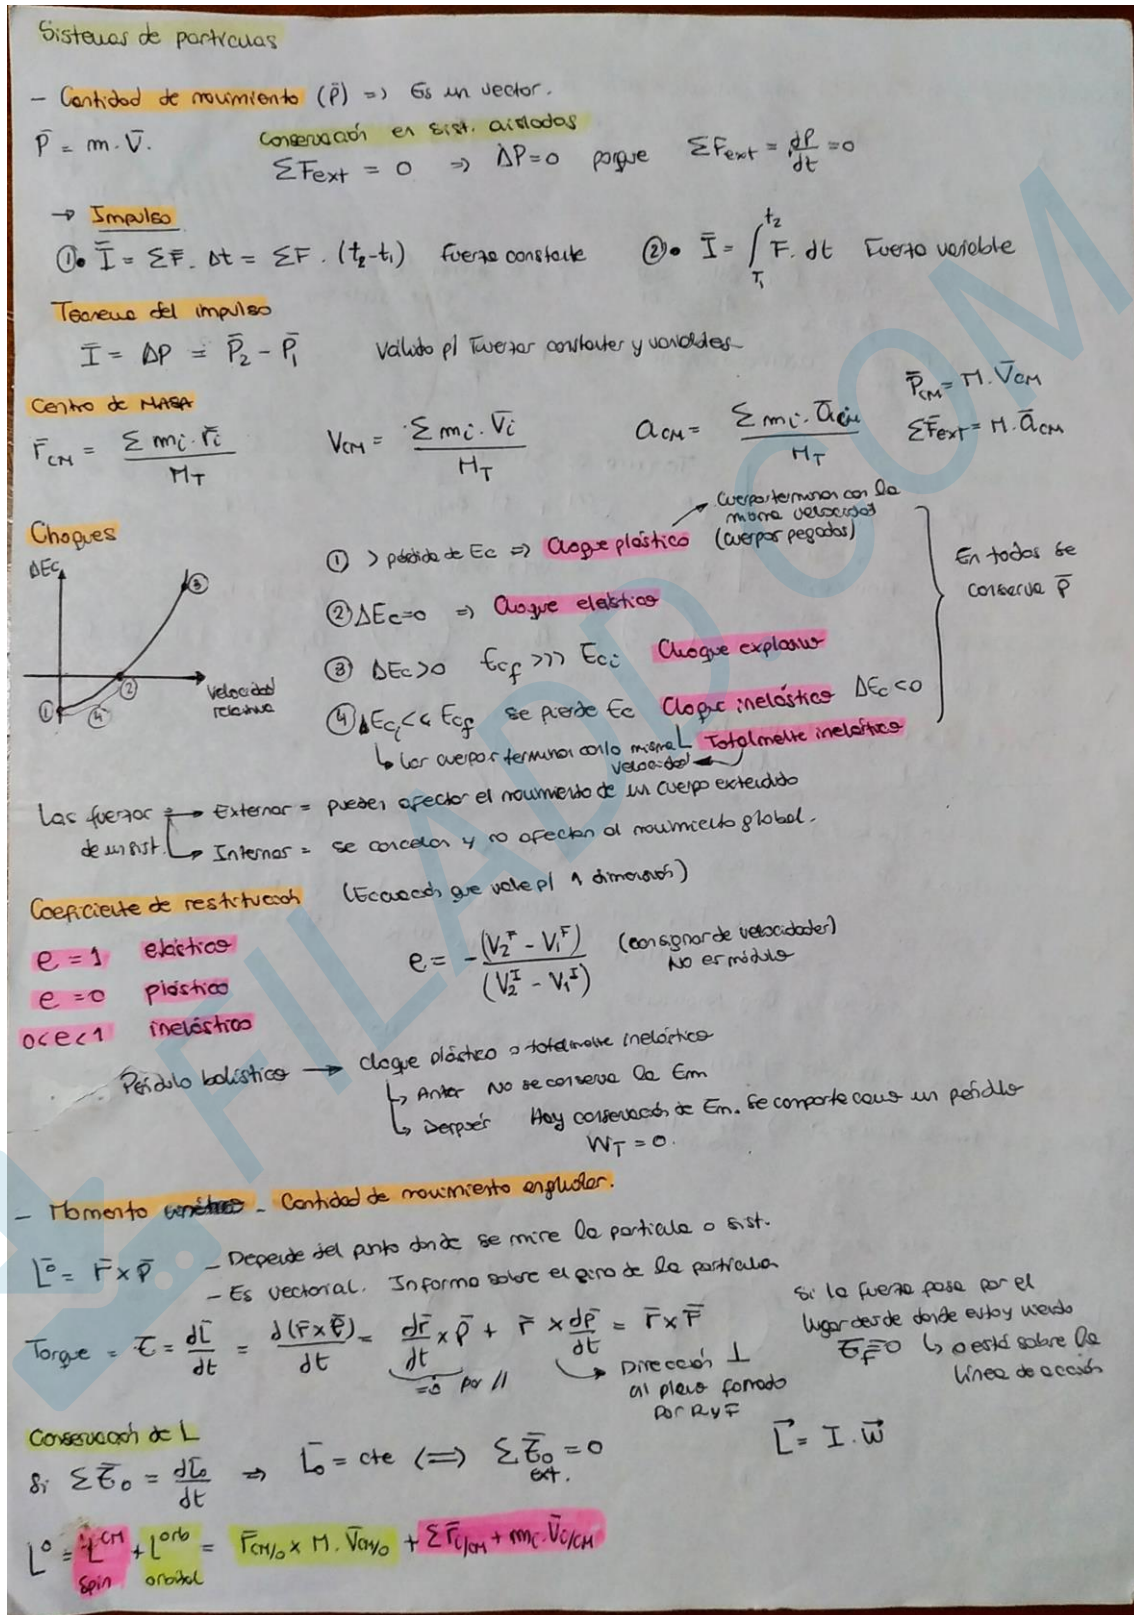 Sistemas de partículas
- Cantidad de movimiento (P̄) => Es un vector.
P̄ = m. V̄.
Conservación en sist. aislados
ΣFext = 0 => ΔP=0 porque ΣFext = dP/dt = 0
→ Impulso
①• Ī = ΣF̄. Δt = ΣF. (t₂-t₁) fuerza constante
②• Ī = ∫ F. dt Fuerza variable
t₂
T₁
Teorema del impulso
Ī = ΔP = P̄₂ - P̄₁ Válido p/ fuerzas constantes y variables
Centro de MASA
r̄CM = Σ mi. r̄i / MT
VCM = Σ mi. V̄i / MT
aCM = Σ mi. āi / MT
P̄CM = M. V̄CM
ΣF̄ext = M. āCM
Choques
ΔEc
velocidad relativa
① ② ③ ④
① > pérdida de Ec => Choque plástico
Cuerpos terminan con la
misma velocidad
(cuerpos pegados)
② ΔEc=0 => Choque elástico
③ ΔEc>0 Ecf >>> Eci Choque explosivo
④ ΔEci<< Ecf se pierde Ec Choque inelástico ΔEc<0
Totalmente inelástico
↳ Los cuerpos terminan con la misma velocidad
En todos se
conserva P̄
Las fuerzas de un sist.
→ Externas = pueden afectar el movimiento de un cuerpo extendido
→ Internas = se cancelan y no afectan al movimiento global.
Coeficiente de restitución (Ecuación que vale p/ 1 dimensión)
e = 1 elástico
e = 0 plástico
0<e<1 inelástico
e = - (V₂ᶠ - V₁ᶠ) / (V₂ᴵ - V₁ᴵ)
(con signos de velocidades)
No es módulo
Péndulo balístico → Choque plástico o totalmente inelástico
↳ Antes No se conserva la Em
↳ Después Hay conservación de Em. Se comporta como un péndulo
WT = 0.
- Momento cinético - Cantidad de movimiento angular.
L̄° = r̄ x p̄
- Depende del punto donde se mire la partícula o sist.
- Es vectorial. Informa sobre el giro de la partícula
Torque = τ̄ = dL̄/dt = d(r̄ x p̄)/dt = dr̄/dt x p̄ + r̄ x dp̄/dt = r̄ x F̄
=0 por //
→ Dirección ⊥
al plano formado
por R y F
Si la fuerza pasa por el
lugar desde donde estoy viendo
τ̄F=0 ↳ o está sobre la
línea de acción
Conservación de L
Si Στ̄o = dL̄o/dt => L̄o = cte <=> Στ̄o ext. = 0
L⃗ = I. w⃗
L° = Lᶜᴹ + Lᵒʳᵇ = r̄CM/o x M. V̄CM/o + Σr̄c/CM + mc. V̄c/CM
Spin orbital
FILADD.COM